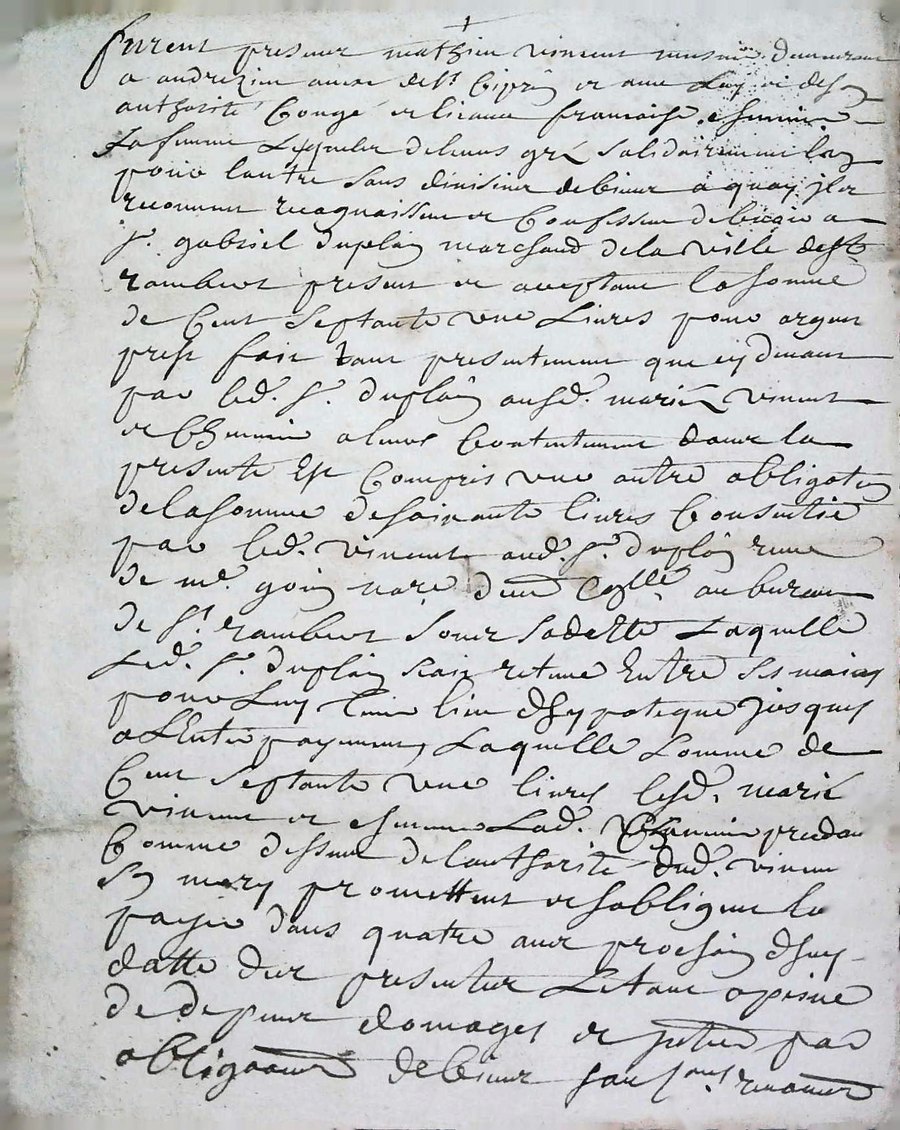 furent presens mathieu vincent demeurant
a andrezieu de St Ciprien et avec Luy et de son
authorité Congé et licence francoise chemin
sa femme Lesquels de leurs gré solidairement lun
pour lautre sans division de biens a quoy ils
renoncent recognoissent et Confessent debvoir a
sr. gabriel duplain marchand de la ville de st
rambert present et acceptant la somme
de Cent septante une Livres pour argent
prest fait tant presentement que cy devant
par led. sr. duplain ausd. mariés vincent
et Chemin a leurs Contentement dans la
presente Est Compris une autre obligation
de la somme de soixante livres Consentie
par led. vincent aud. sr. duplain receue
de me. goin nore. au bureau
de st. rambert sous sa datte Laquelle
Led. sr. duplain retient Entre ses mains
pour Luy tenir lieu dhypoteque jusques
a lEntier payement, Laquelle somme de
Cent septante une livres lesd. mariés
vincent et chemin Lad. Chemin procedant
Comme dessus de lauthorité dud. vincent
son mary promettent et sobligent la
payer dans quatre ans prochain dhuy
datte des presentes Letout a peine
de depens domages et par
obligation de biens renoncer